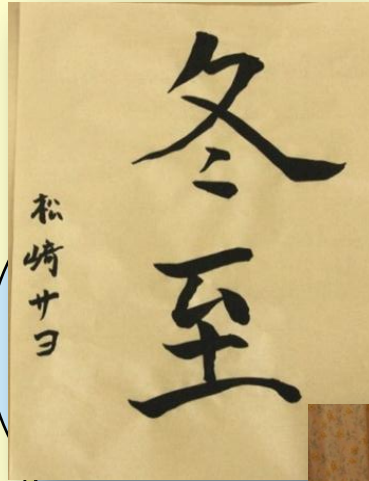 冬至
松崎サヨ